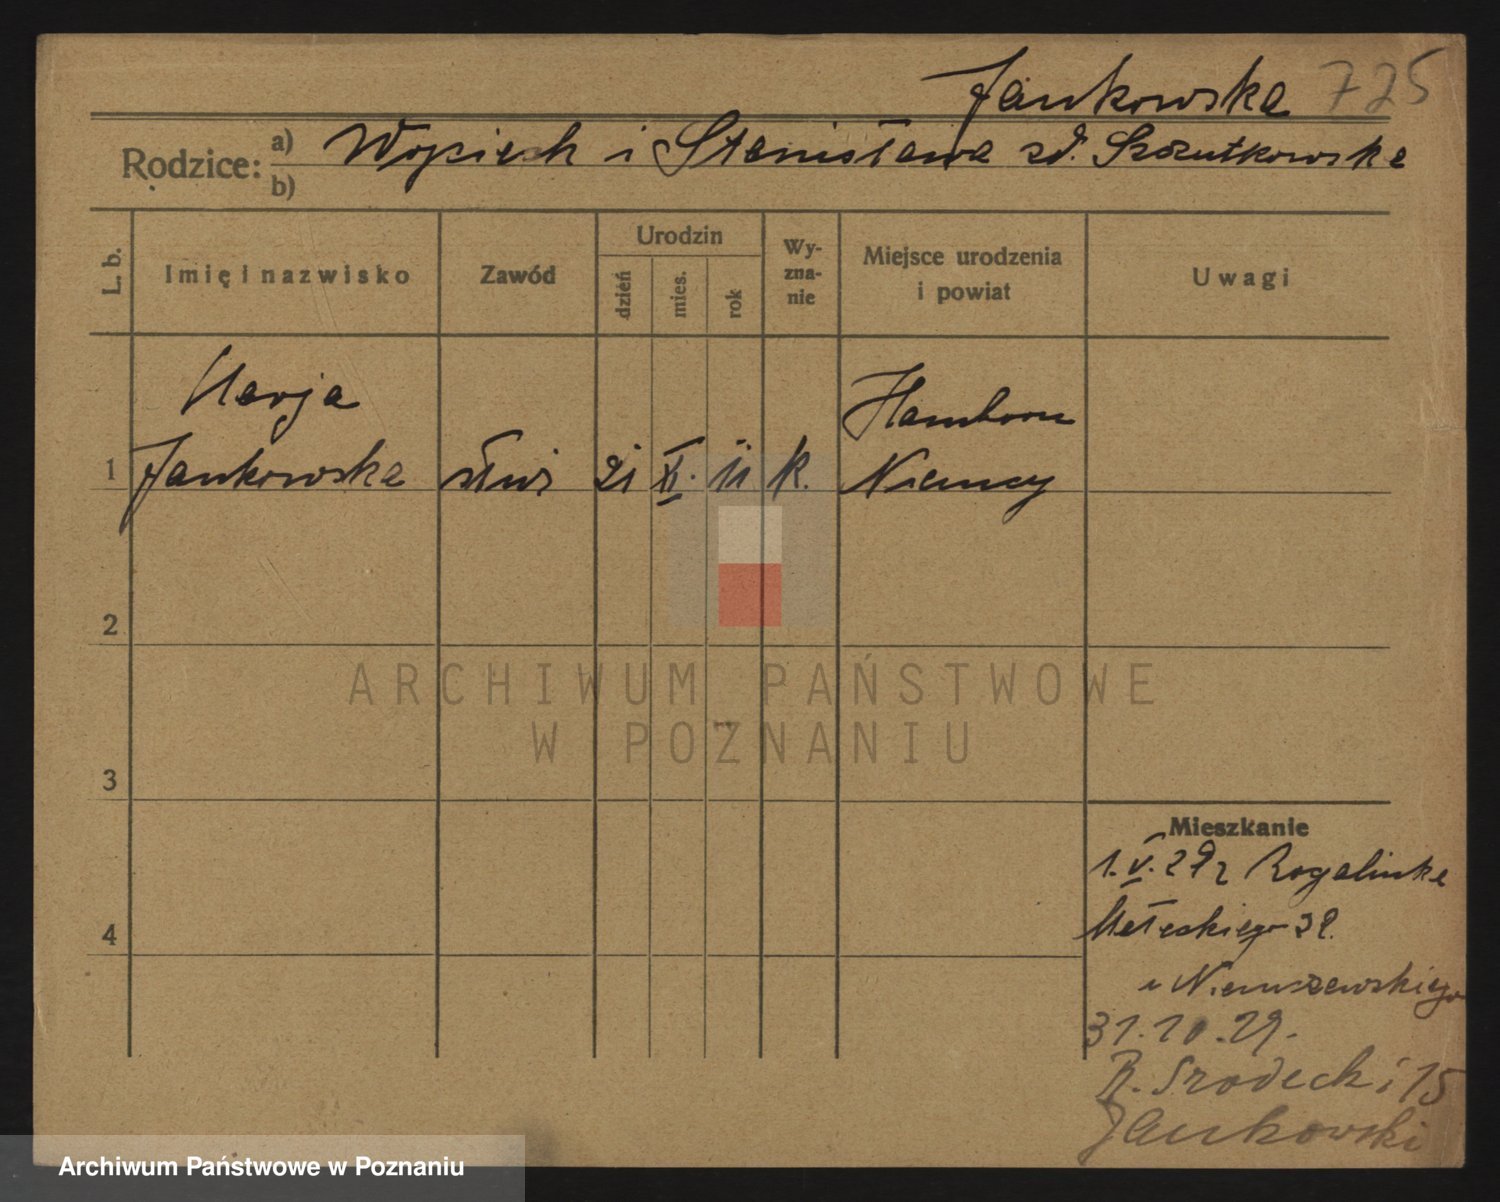 Jankowska 725
Rodzice: a) Wojciech i Stanisława zd. Szczutkowska
b)
L. b.
Imię i nazwisko
Zawód
Urodzin
dzień
mies.
rok
Wy-
zna-
nie
Miejsce urodzenia
i powiat
Uwagi
Marja Hamborn
1 Jankowska służ 21 XI. 11 k. Niemcy
2
ARCHIWUM PAŃSTWOWE
W POZNANIU
3
Mieszkanie
1.V.29 z Rogalinka
4 Małeckiego 32.
u Niemszewskiego
31.10.29.
R. Srodecki 15
Jankowski
Archiwum Państwowe w Poznaniu